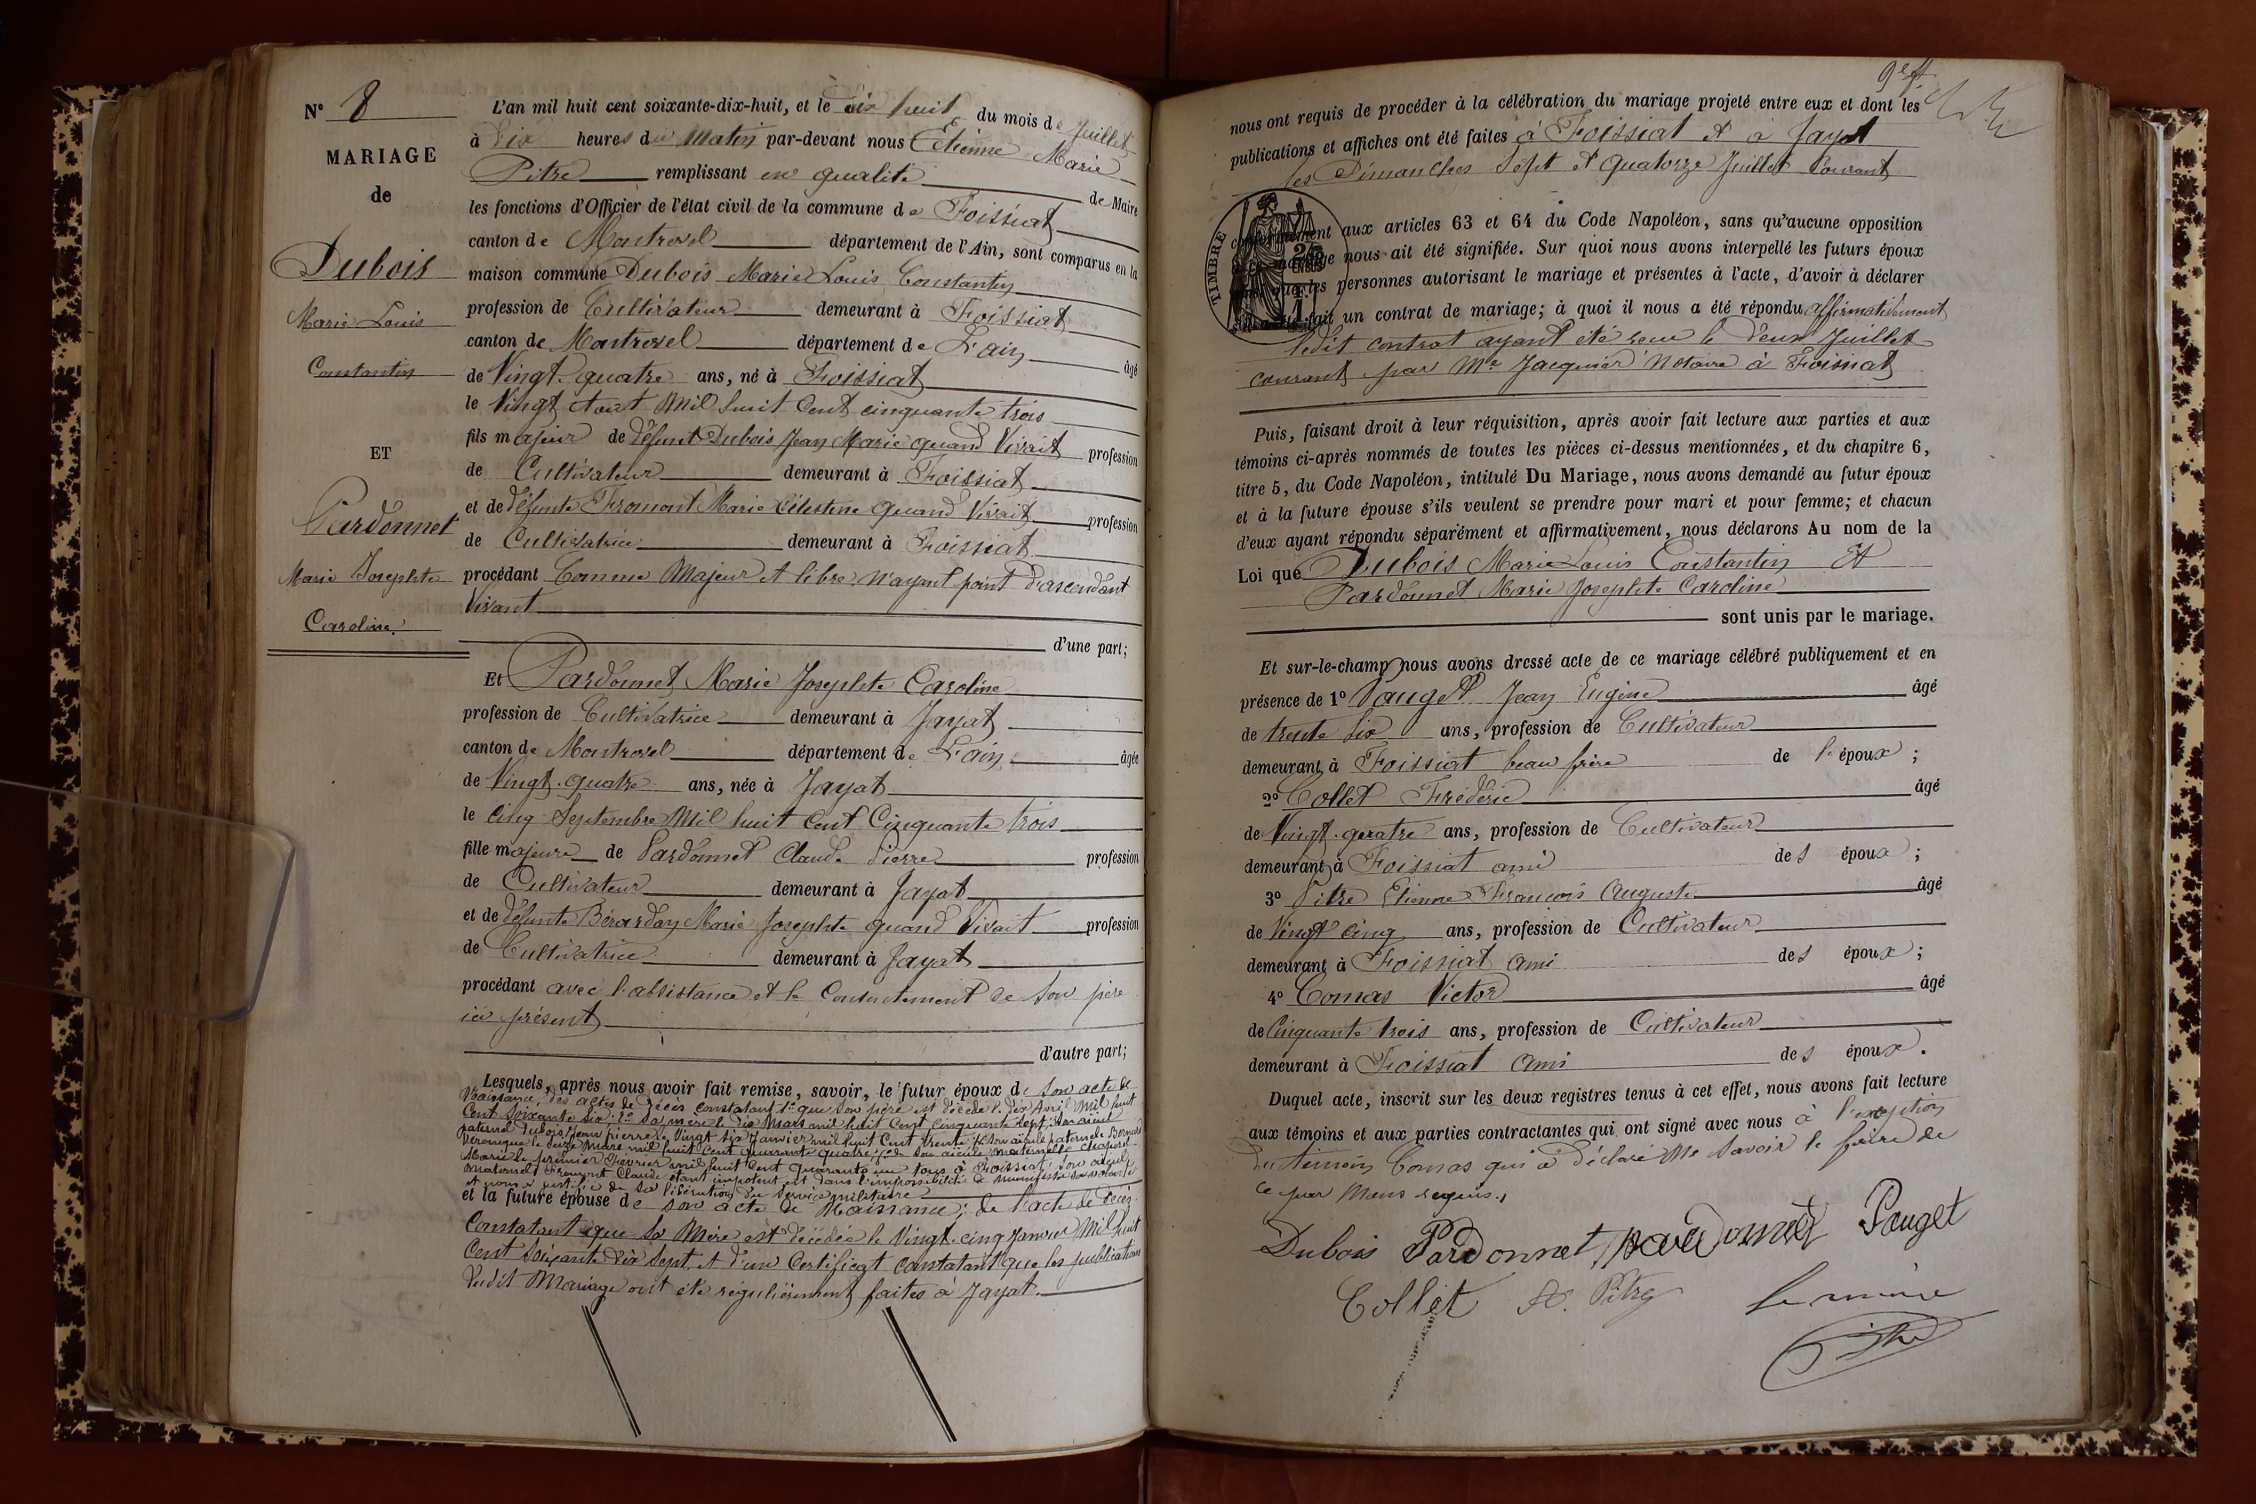 N° 8
MARIAGE
de
Dubois
Marie Louis
Constantin
ET
Pardonnet
Marie Josephte
Caroline.
L'an mil huit cent soixante-dix-huit, et le dix huit du mois de Juillet
à Dix heures du Matin par-devant nous Etienne Marie
Pitre remplissant en qualité de Maire
les fonctions d'Officier de l'état civil de la commune de Foissiat
canton de Montrevel département de l'Ain, sont comparus en la
maison commune Dubois Marie Louis Constantin
profession de Cultivateur demeurant à Foissiat
canton de Montrevel département de L'ain âgé
de Vingt-quatre ans, né à Foissiat
le Vingt Aout Mil huit Cent cinquante trois
fils majeur de défunt Dubois Jean Marie quand Vivait profession
de Cultivateur demeurant à Foissiat
et de défunte Fromont Marie Célestine quand Vivait profession
de Cultivatrice demeurant à Foissiat
procédant Comme Majeur et libre n'ayant point d'ascendant
Vivant
d'une part;
Et Pardonnet Marie Josephte Caroline
profession de Cultivatrice demeurant à Jayat
canton de Montrevel département de L'ain âgée
de Vingt-quatre ans, née à Jayat
le Cinq Septembre Mil huit Cent Cinquante trois
fille majeure de Pardonnet Claude Pierre profession
de Cultivateur demeurant à Jayat
et de défunte Bérardan Marie Josephte quand Vivait profession
de Cultivatrice demeurant à Jayat
procédant avec l'assistance et le Consentement de Son père
ici présent
d'autre part;
Lesquels, après nous avoir fait remise, savoir, le futur époux de Son acte de
Naissance, des actes de décès constatant 1° que Son père est décédé le dix Avril Mil huit
Cent Soixante Six; 2° Sa mère le dix Mars mil huit Cent Cinquante Sept; Son aïeul
paternel Dubois Jean pierre le Vingt Six Janvier mil huit Cent trente Son aïeule paternele
Véronique le Mars mil huit Cent quarante quatre; Son aïeule maternelle
Marie le premier Février mil huit Cent quarante un tous à Foissiat; Son aïeul
Maternel Fromont Claude étant impotent est dans l'impossibilité de
et nous a justifié de Sa libération du Service militaire
et la future épouse de Son acte de Naissance; de l'acte de décès
Constatant que Sa Mère est décédée le Vingt-cinq Janvier Mil huit
Cent Soixante Dix Sept, et d'un Certificat constatant que les publications
dudit Mariage ont été régulièrement faites à Jayat.
nous ont requis de procéder à la célébration du mariage projeté entre eux et dont les
publications et affiches ont été faites à Foissiat et à Jayat
les Dimanches Sept et Quatorze Juillet Courant
TIMBRE
conformément aux articles 63 et 64 du Code Napoléon, sans qu'aucune opposition
mariage nous ait été signifiée. Sur quoi nous avons interpellé les futurs époux
que les personnes autorisant le mariage et présentes à l'acte, d'avoir à déclarer
fait un contrat de mariage; à quoi il nous a été répondu affirmativement
ledit contrat ayant été reçu le deux Juillet
courant par Me Jacquier Notaire à Foissiat
Puis, faisant droit à leur réquisition, après avoir fait lecture aux parties et aux
témoins ci-après nommés de toutes les pièces ci-dessus mentionnées, et du chapitre 6,
titre 5, du Code Napoléon, intitulé Du Mariage, nous avons demandé au futur époux
et à la future épouse s'ils veulent se prendre pour mari et pour femme; et chacun
d'eux ayant répondu séparément et affirmativement, nous déclarons Au nom de la
Loi que Dubois Marie Louis Constantin Et
Pardonnet Marie Josephte Caroline
sont unis par le mariage.
Et sur-le-champ nous avons dressé acte de ce mariage célébré publiquement et en
présence de 1° Pauget Jean Eugène âgé
de trente six ans, profession de Cultivateur
demeurant à Foissiat beau frère de l'époux;
2° Collet Frédéric âgé
de Vingt-quatre ans, profession de Cultivateur
demeurant à Foissiat ami des époux;
3° Pitre Etienne François Auguste âgé
de Vingt Cinq ans, profession de Cultivateur
demeurant à Foissiat ami des époux;
4° Comas Victor âgé
de Cinquante trois ans, profession de Cultivateur
demeurant à Foissiat ami des époux.
Duquel acte, inscrit sur les deux registres tenus à cet effet, nous avons fait lecture
aux témoins et aux parties contractantes qui ont signé avec nous à l'exception
du témoin Comas qui a déclaré Ne Savoir le faire de
ce par Nous requis.
Dubois Pardonnet pardonnet Pauget
Collet Pitre le maire
Pitre